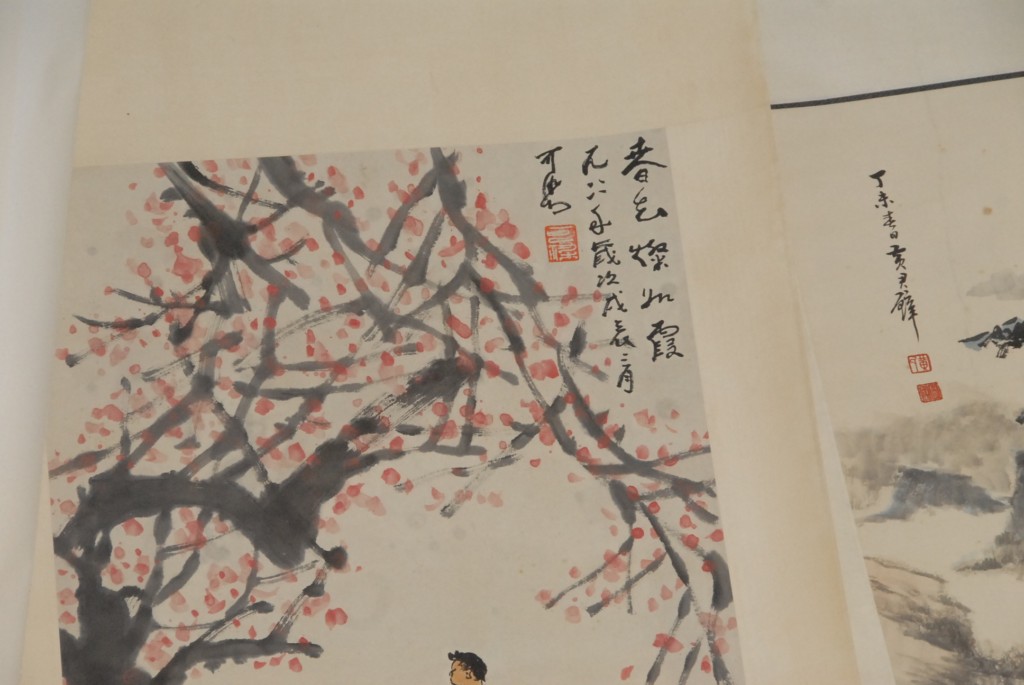 春
燦如霞
一九八八年歲次戊辰二月
可染
丁未春日黃君璧